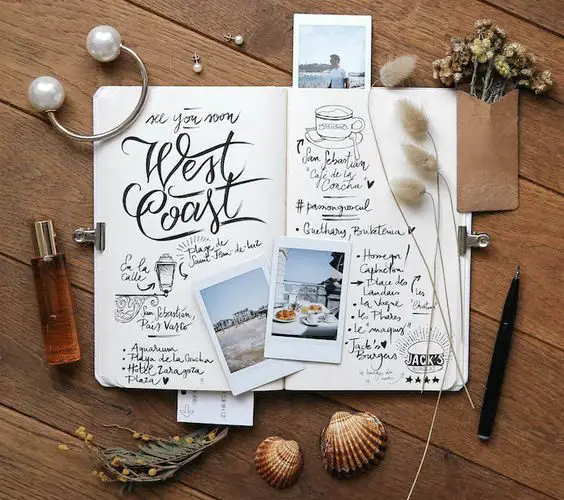 see you soon
West
Coast
Plage de
Saint-Jean-de-luz
En la
calle
San Sebastian,
País Vasco
• Aquarium
• Playa de la Concha
• Hôtel Zaragoza
Plaza
San Sebastian
"Café de la
Concha"
#passiongrascul
Guethary, Biuketena
• Homegn!
Capbreton
Place des
Landais
• La Vague
• les Phares
• Le "maquis"
• Jack's
Burgers
JACK'S